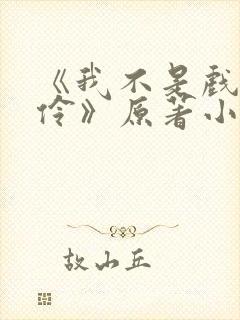 《我不是戲
伶》原著小
故山丘